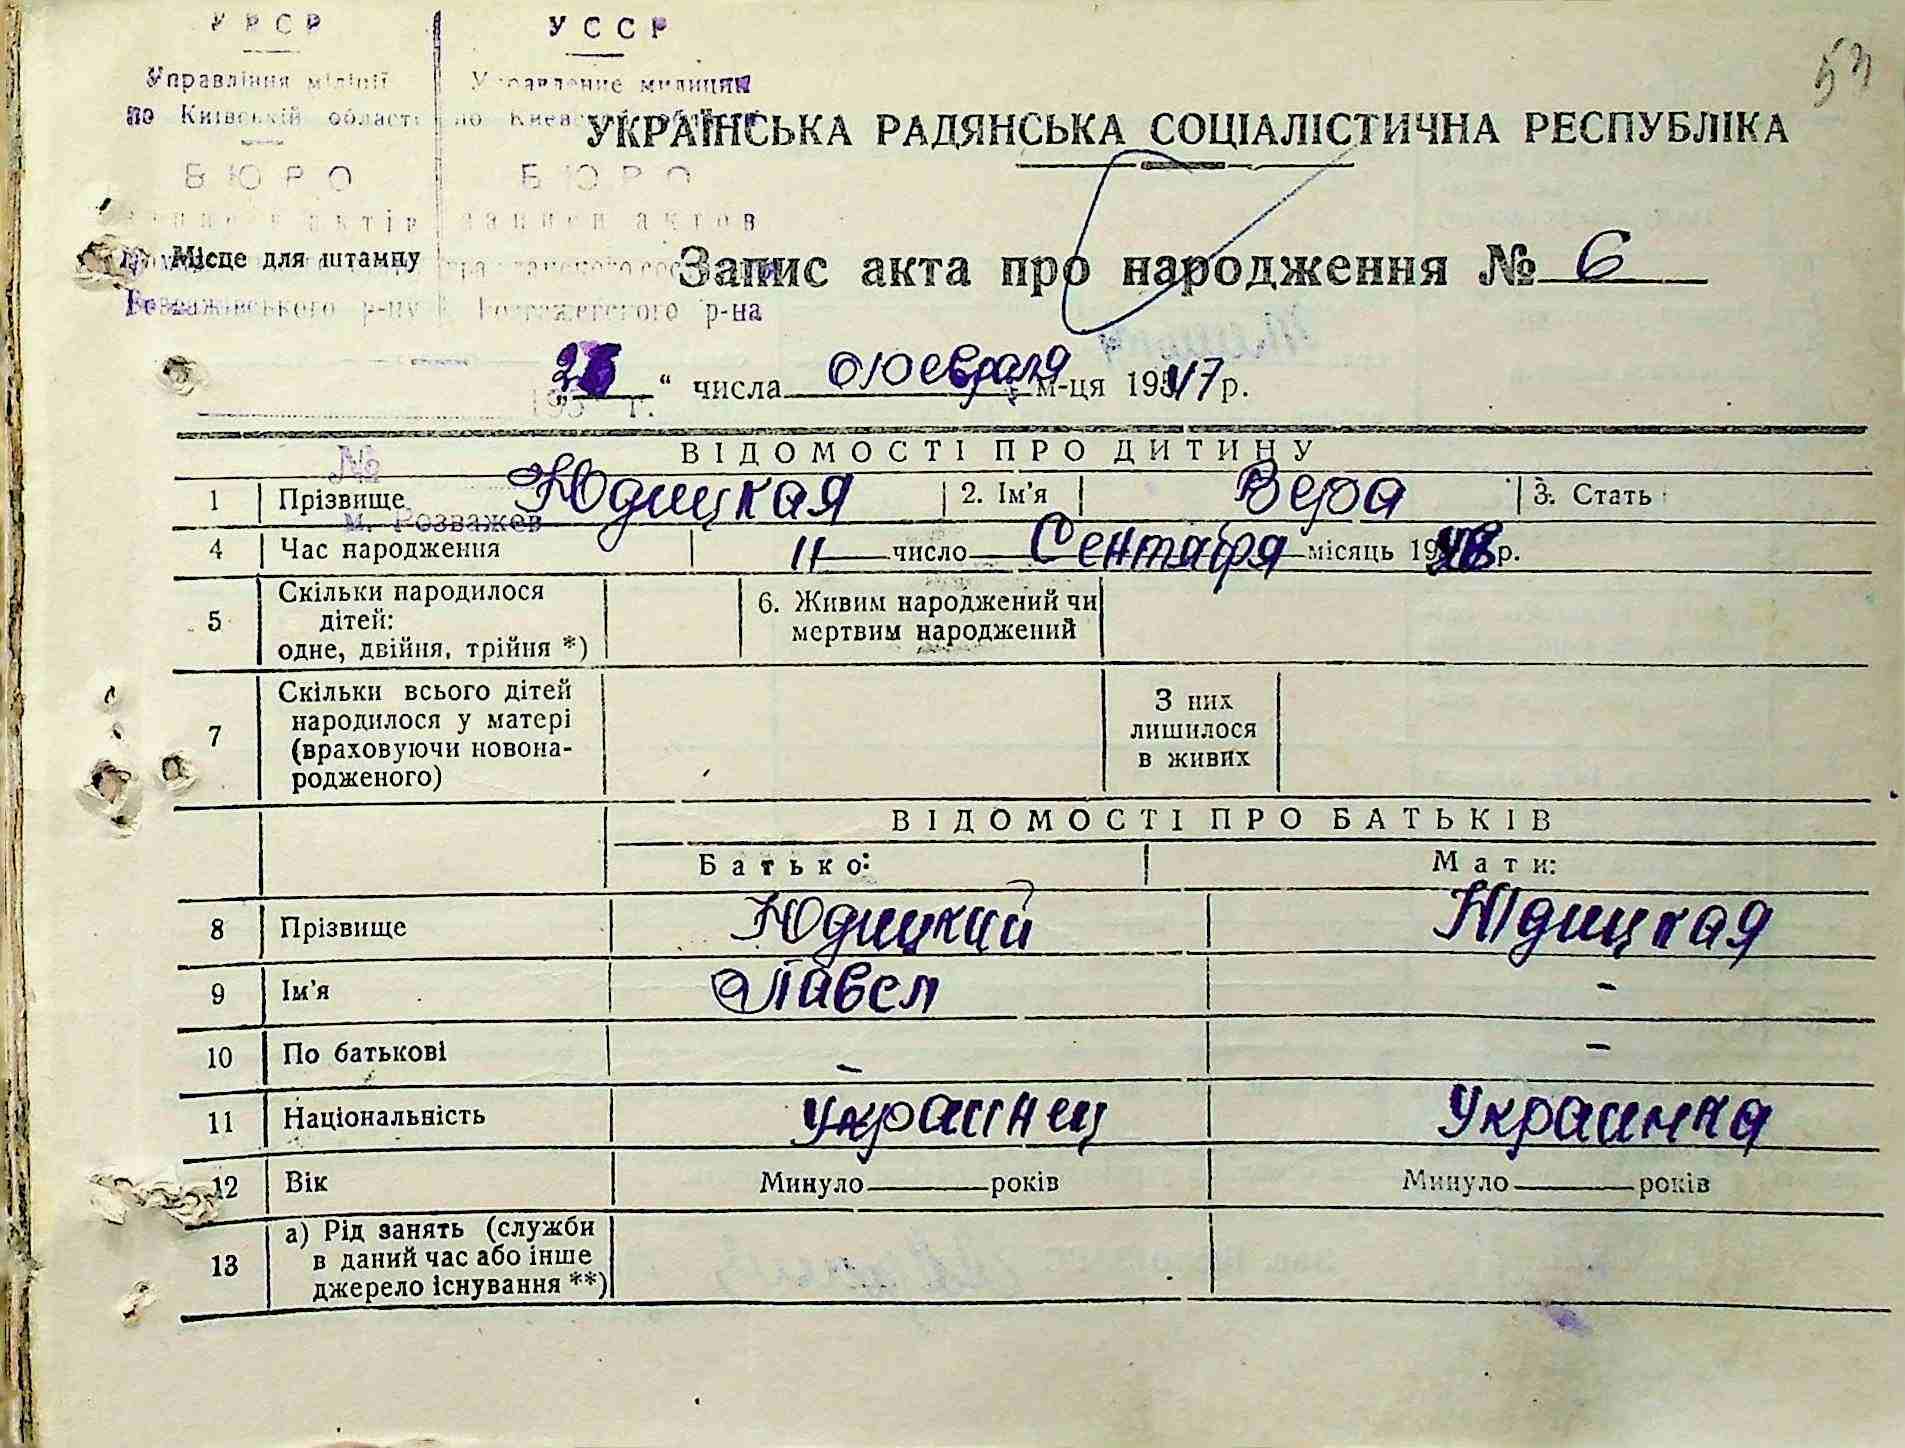 УРСР
УССР
Управління міліції
Управление милиции
по Київській області
по Киевс
53
УКРАЇНСЬКА РАДЯНСЬКА СОЦІАЛІСТИЧНА РЕСПУБЛІКА
БЮРО
БЮРО
актів
записи актов
Місце для штампу
Запис акта про народження № 6
Розважівського р-ну
Розважевского р-на
" числа февраля м-ця 1947 р.
195 г.
№
ВІДОМОСТІ ПРО ДИТИНУ
1 Прізвище Юдицкая 2. Ім'я Вера 3. Стать
м. Розважев
4 Час народження 11 число Сентября місяць 19 р.
5 Скільки народилося дітей: одне, двійня, трійня *)
6. Живим народжений чи мертвим народжений
7 Скільки всього дітей народилося у матері (враховуючи новонародженого)
З них лишилося в живих
ВІДОМОСТІ ПРО БАТЬКІВ
Батько: Мати:
8 Прізвище Юдицкий Юдицкая
9 Ім'я Павел -
10 По батькові - -
11 Національність украинец Украинка
12 Вік Минуло років Минуло років
13 а) Рід занять (служби в даний час або інше джерело існування **)